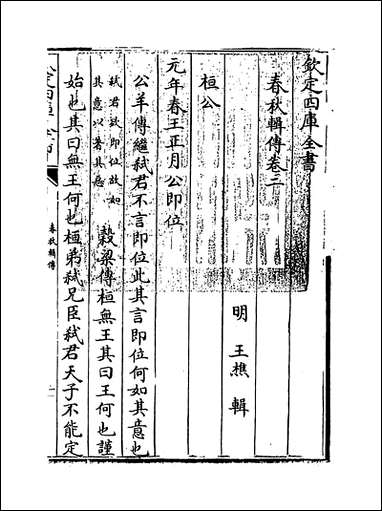 欽定四庫全書
春秋輯傳卷三
明 王樵 輯
桓公
元年春王正月公即位
公羊傳繼弒君不言即位此其言即位何如其意也
弒君欲即位故如其意以著其惡
穀梁傳桓無王其曰王何也謹
始也其曰無王何也桓弟弒兄臣弒君天子不能定
春秋輯傳
一